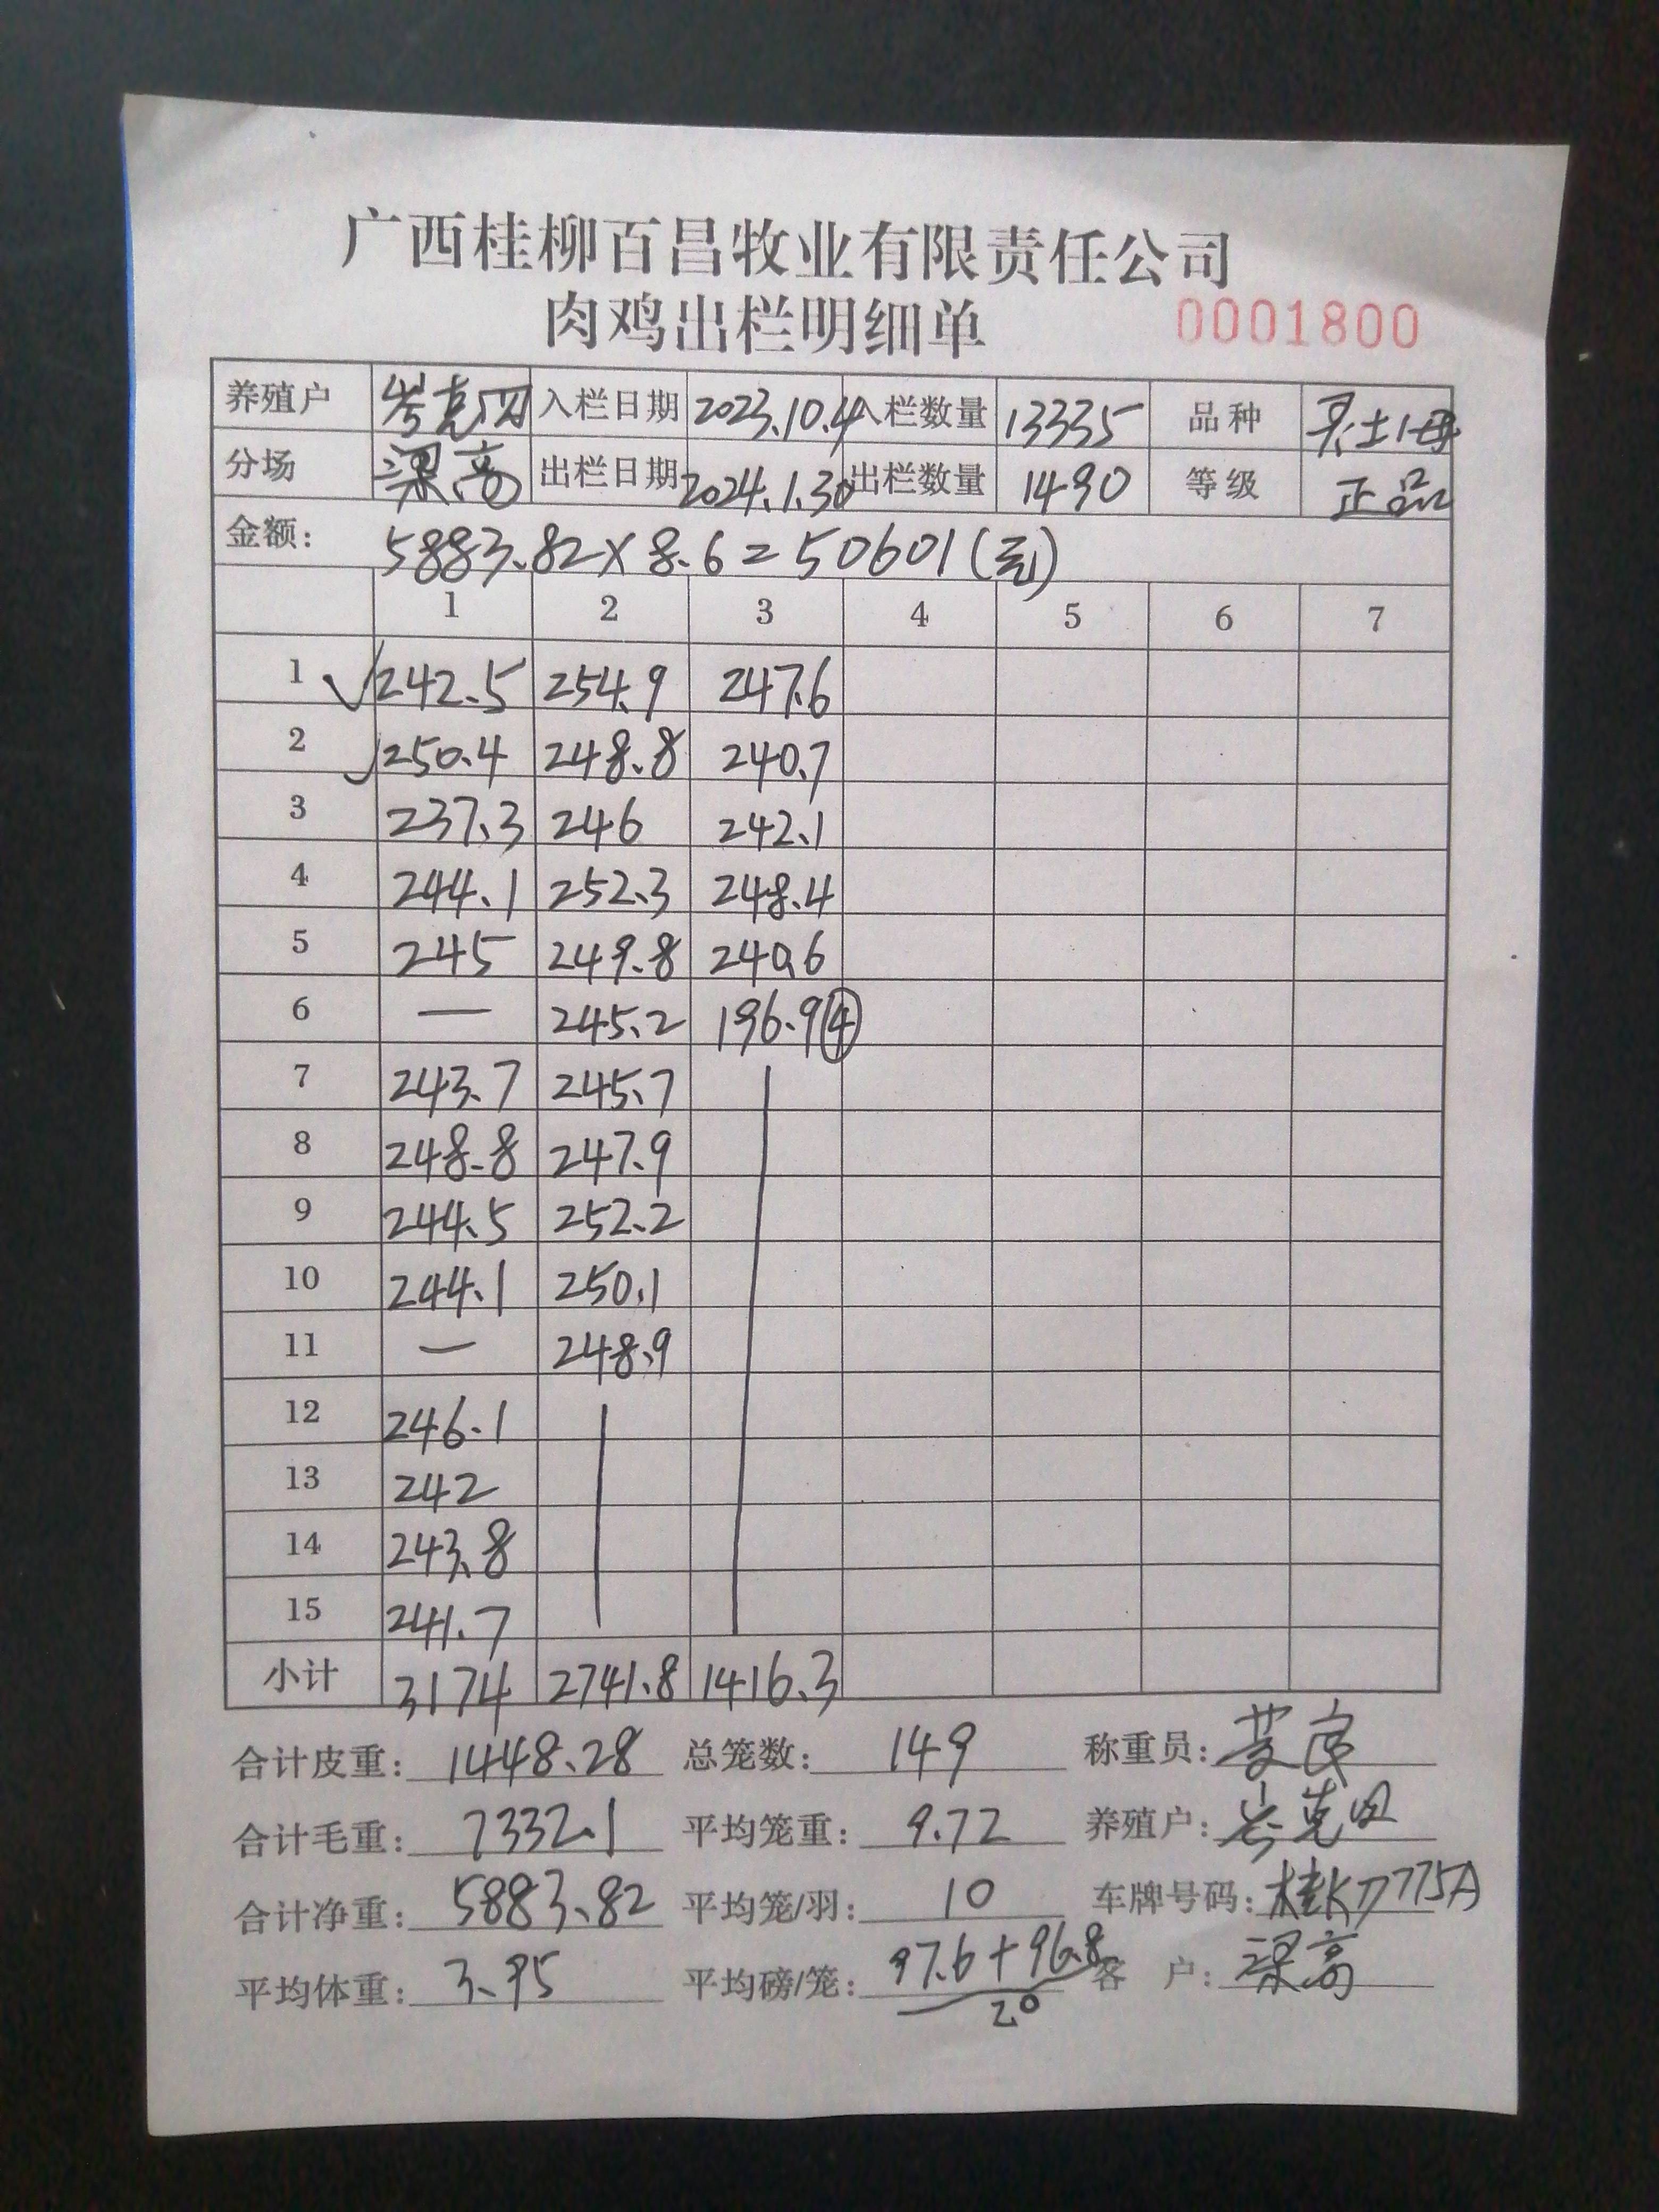 广西桂柳百昌牧业有限责任公司
肉鸡出栏明细单 0001800
养殖户 岑克 入栏日期 2023.10.4 入栏数量 13335 品种 土1母
分场 梁高 出栏日期 2024.1.30 出栏数量 1490 等级 正品
金额: 5883.82×8.6=50601(元)
1 2 3 4 5 6 7
1 √242.5 254.9 247.6
2 √250.4 248.8 240.7
3 237.3 246 242.1
4 244.1 252.3 248.4
5 245 249.8 240.6
6 — 245.2 196.9④
7 243.7 245.7
8 248.8 247.9
9 244.5 252.2
10 244.1 250.1
11 — 248.9
12 246.1
13 242
14 243.8
15 241.7
小计 3174 2741.8 1416.3
合计皮重: 1448.28 总笼数: 149 称重员:
合计毛重: 7332.1 平均笼重: 9.72 养殖户: 岑克
合计净重: 5883.82 平均笼/羽: 10 车牌号码: 桂KD775A
平均体重: 3.95 平均磅/笼: 97.6+96.8 客 户: 梁高
20